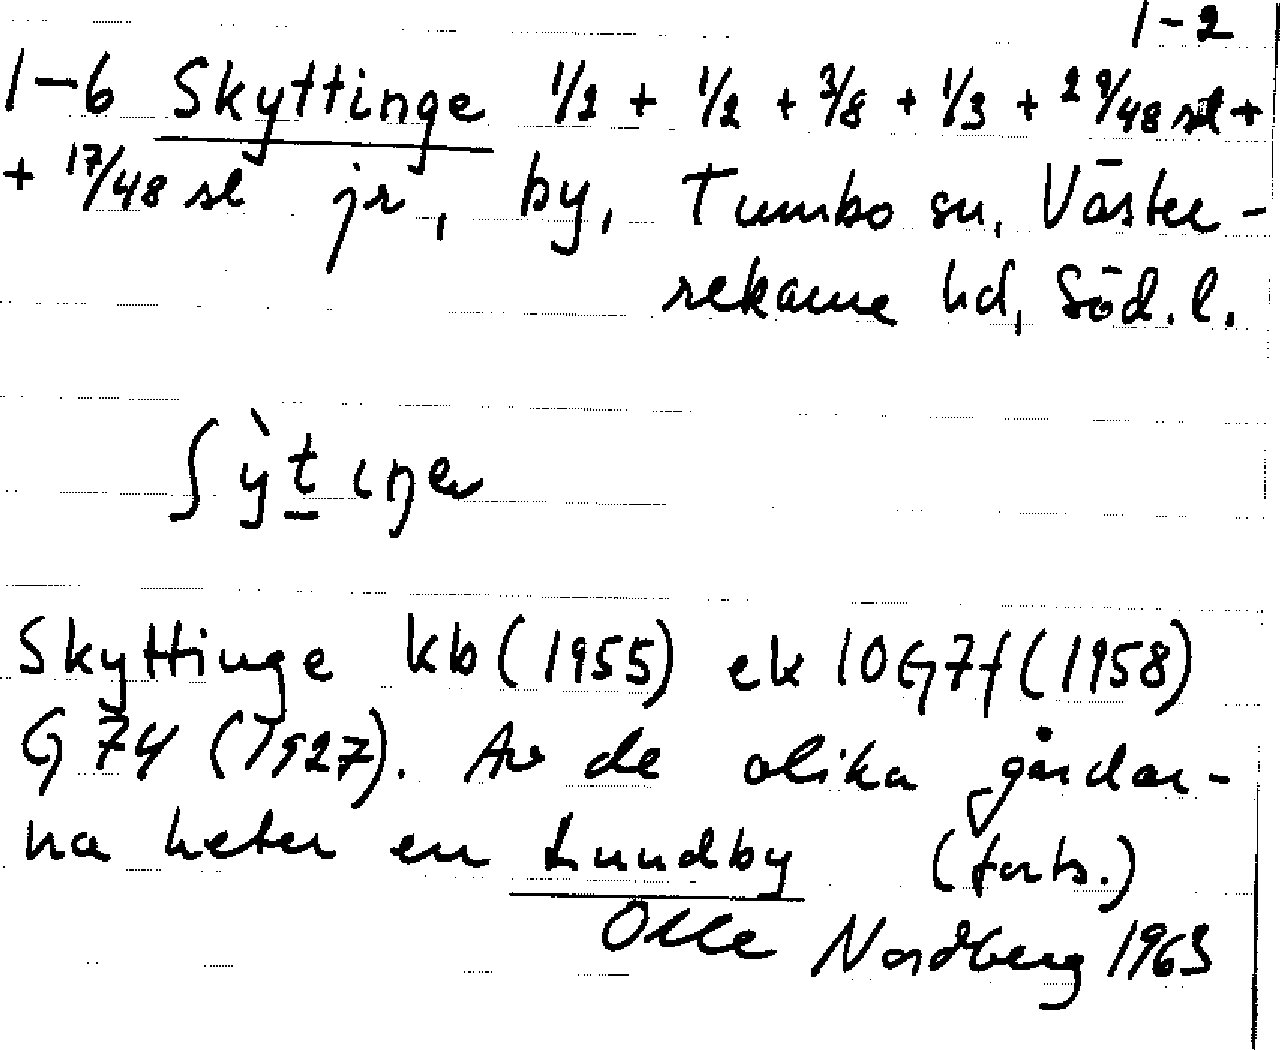 1-2
1-6 Skyttinge 1/2 + 1/2 + 3/8 + 1/3 + 29/48 sl +
+ 17/48 sl jr, by, Tumbo sn, Väster-
rekarne hd, Söd. l.
ʃỳt̲ ɩŋe
Skyttinge kb (1955) ek 10G7f (1958)
G 74 (1927). Av de olika gårdar-
na heter en Lundby (forts.)
Olle Nordberg 1963